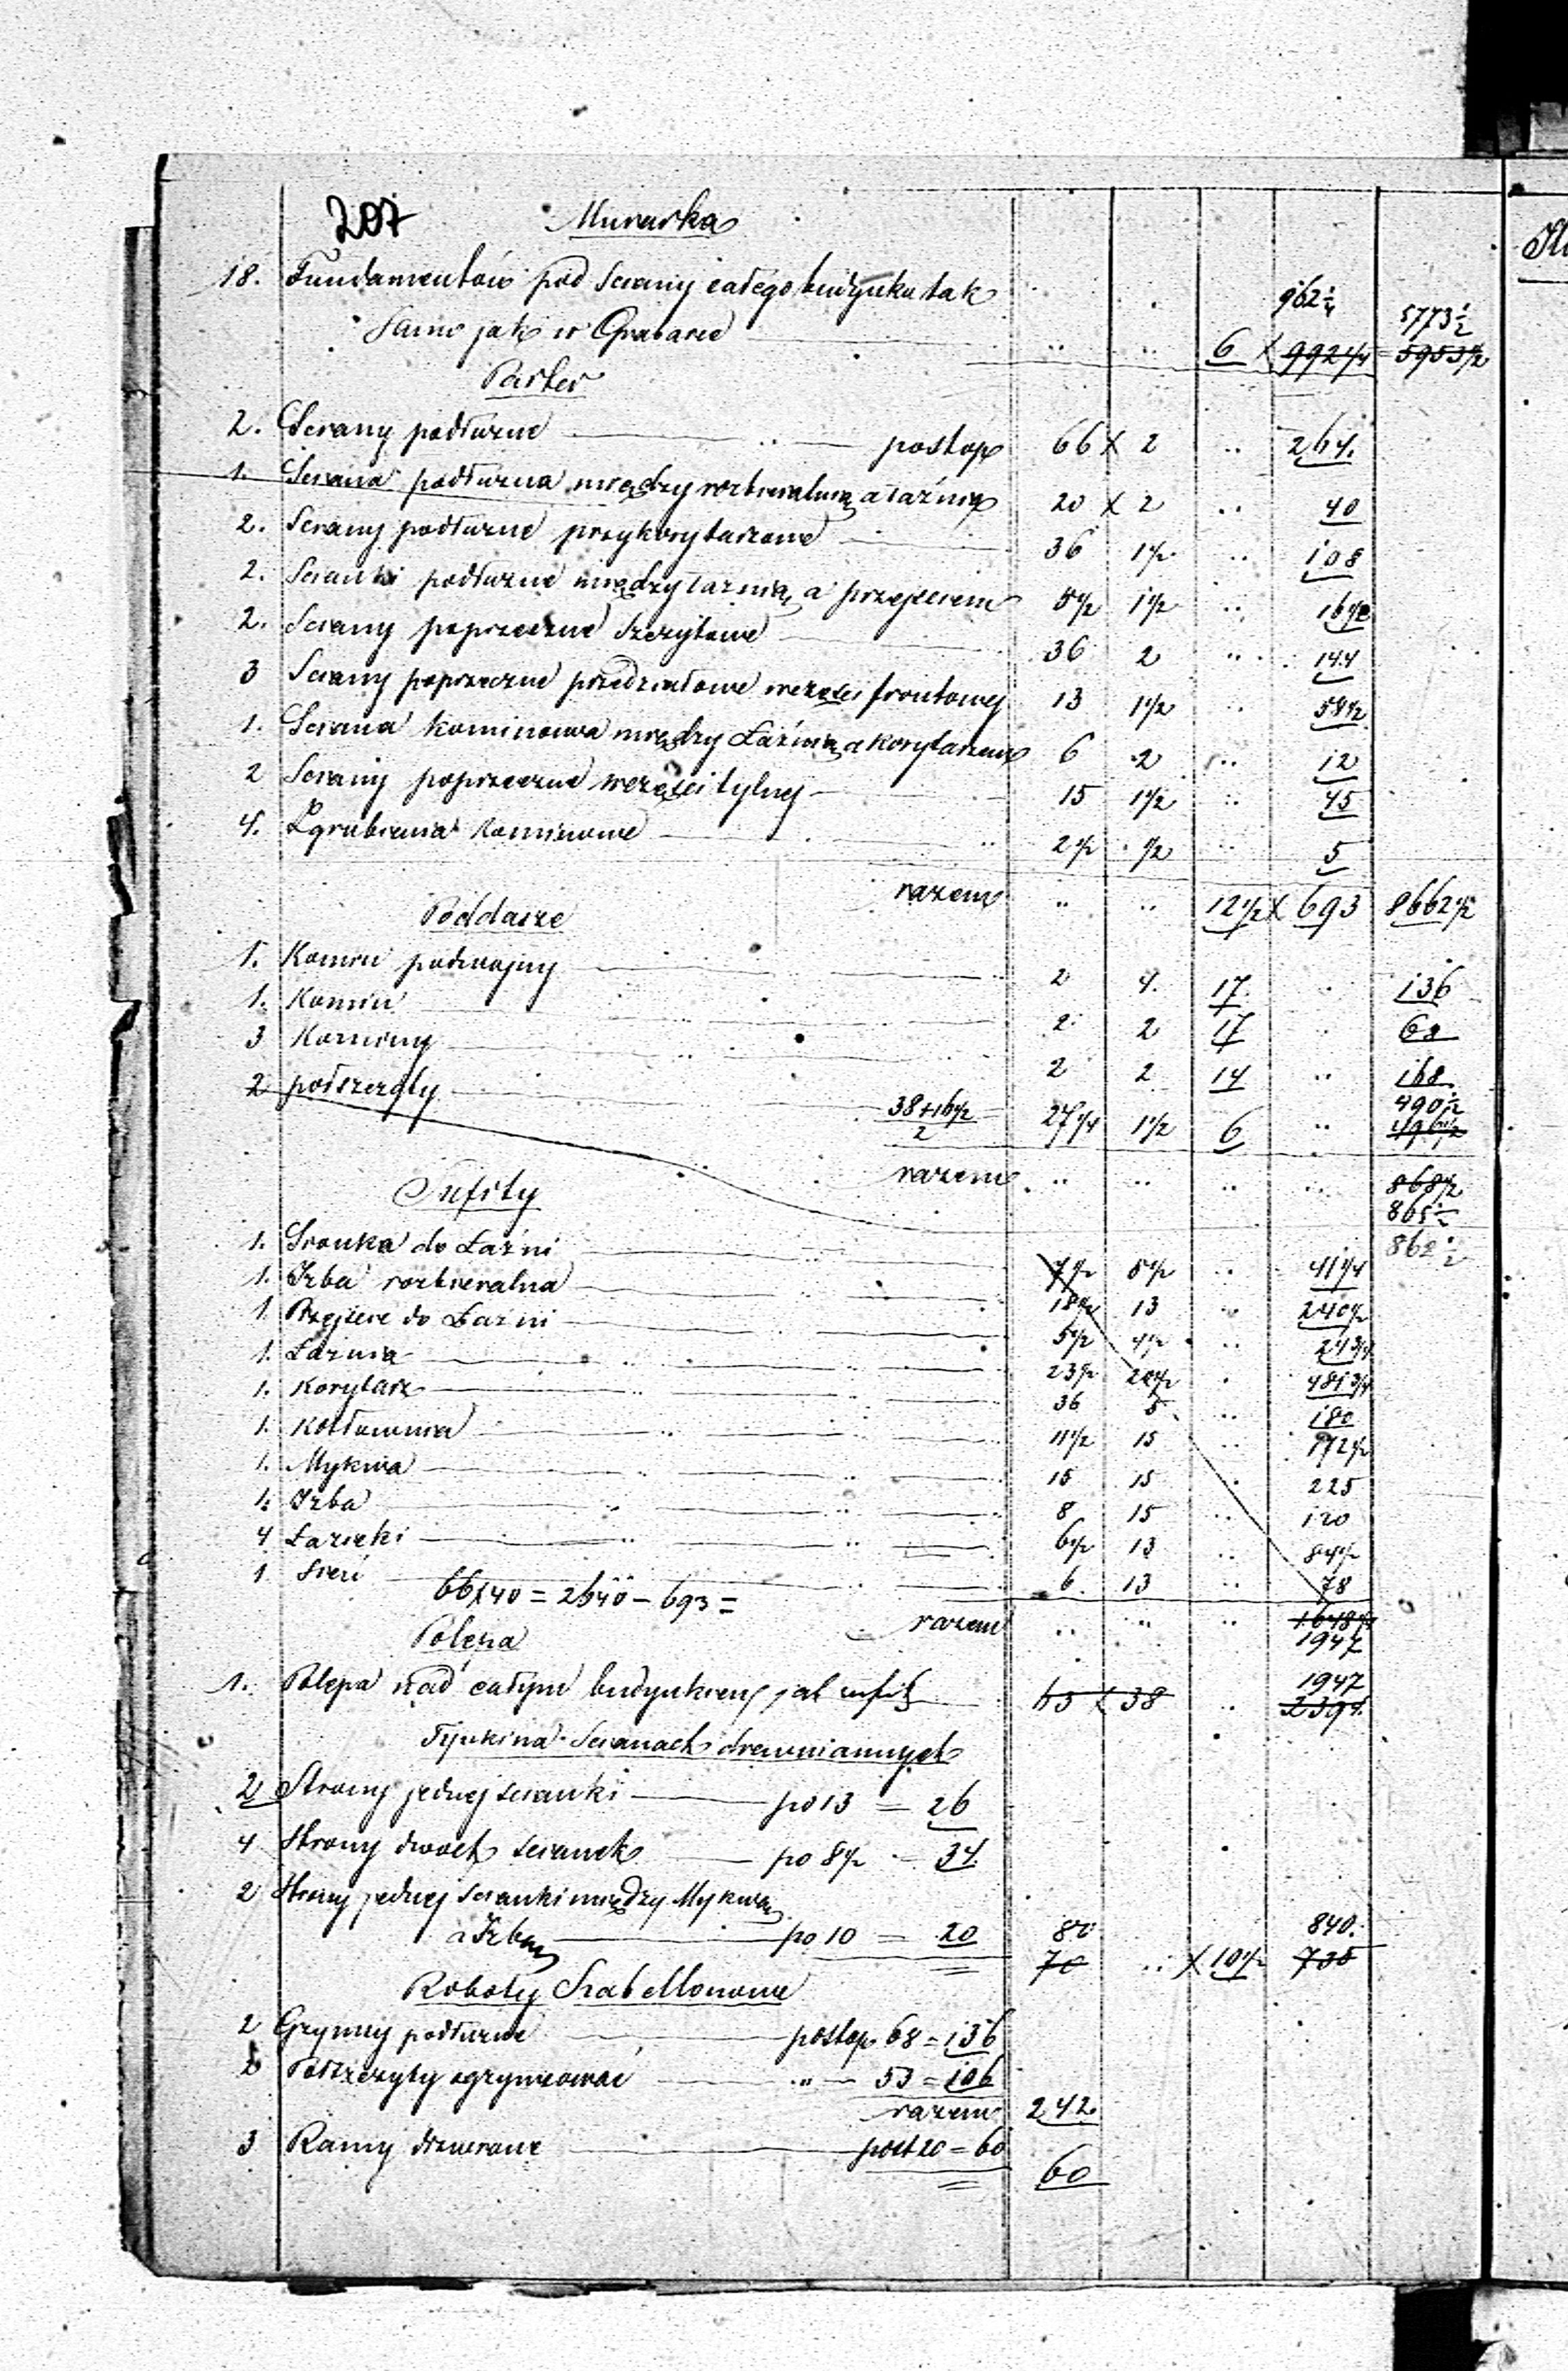 207 Murarka
18. Fundamentów pod Sciany całego budynku tak 962¼ 5773½
Samo jak w Grabarce .. .. 6 X 992¼ = 5953½
Parter
2. Sciany podłużne .. postop 66 X 2 .. 264.
1. Sciana podłużna między rozbieralnią a łaźnią 20 X 2 .. 40
2. Sciany podłużne przykorytarzowe 36 1½ .. 108
2. Scianki podłużne między łaźnią a przejściem 5½ 1½ .. 16½
2. Sciany poprzeczne Szczytowe 36 2 .. 144
3 Sciany poprzeczne przedziałowe w części frontowej 13 1½ .. 58½
1. Sciana kominowa między Łaźnią a Korytarzem 6 2 .. 12
2 Sciany poprzeczne w części tylnej 15 1½ .. 45
4. Zgrubienia Kominowe .. 2½ ½ .. 5
razem .. .. 12½ X 693 8662½
Poddasze
1. Komin podwojny 2 4. 17. 136
1. Komin 2 2 17 68
3 Kominy 2 2 14 .. 168
490½
2 podszczyty 38+16½ / 2 27¼ 1½ 6 .. 496½
razem .. .. .. .. 868½
865½
Sufity
862½
1. Sionka do Łaźni 7½ 5½ .. 41¼
1. Izba rozbieralna 18½ 13 .. 240½
1 Przejście do Łaźni 5½ 4½ .. 24¾
1. Łaznia 23½ 20½ . 481¾
1. Korytarz 36 5 .. 180
1. Kotłownia 11½ 15 .. 172½
1. Mykwa 15 15 . 225
1. Izba 8 15 .. 120
4 Łazieki 6½ 13 .. 84½
1 Sień 6. 13 .. 78
66X40 = 2640 – 693 =
razem .. .. .. 1648¼
1947
Polepa
1947
1. Polepa nad całym budynkiem jak sufit 63 X 38 .. 2394
Tynki na Scianach drewniannych
2 Strony jednej scianki po 13 = 26
4 Strony dwoch scianek po 8½ – 34.
2 Strony jednej scianki między Mykwą
a Izbą po 10 = 20 80 840.
70 .. X 10½ 735
Roboty Szabellonowe
2 Gzymsy podłużne postop 68 = 136
2 Podszczyty ogzymsować .. — 53 = 106
razem 242.
3 Ramy drzwiowe post 20 = 60
60